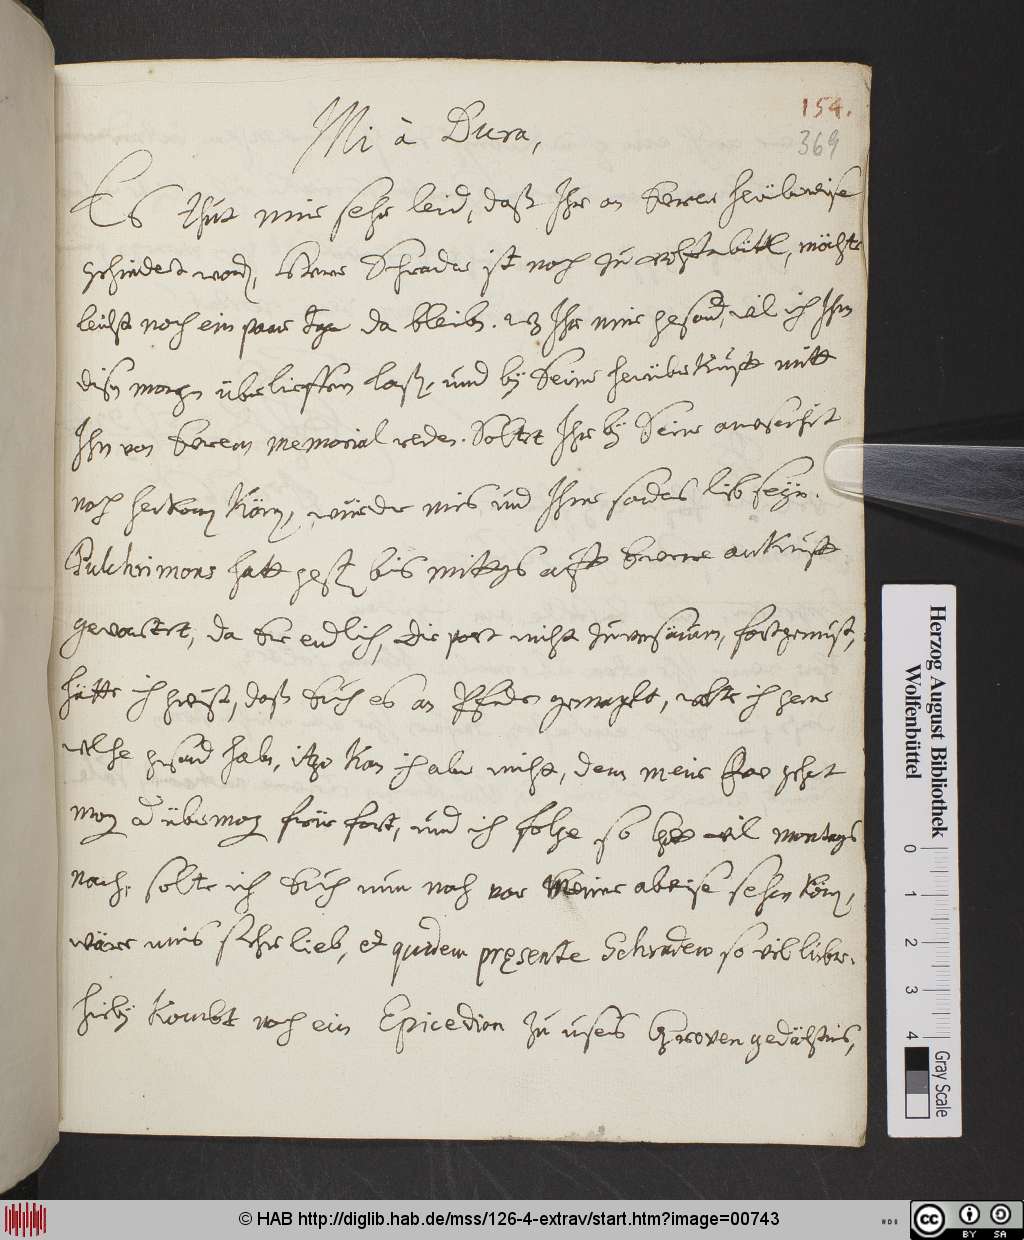 154.
369
Mi à Dura,
Es thut mir sehr leid, daß Ihr an herüberreise
gehindert word, Schrader ist noch zu möchte
leicht noch ein paar tage da bleiben. Ihr mir gesand, wil ich Ihm
disen morgen überlieffern laßen, und bey Seiner herüberkunfft mitt
Ihm von Eurem memorial reden. Soltet Ihr bey Seiner anwesenheit
noch herkommen können, würde mirs und Ihme sonders lib seyn.
Pulchrimons hatt gestern bis mittags auff Euere ankunfft
gewartet, da Er endlich, die post nicht zuversäumen, fortgemust,
hätte ich gewust, daß Euch es an Pferden gemangelt, wolte ich gerne
welche gesand haben, itzo kan ich aber nicht, denn meine Frau gehet
morgen übermorgen früe fort, und ich folge so wil montags
nach, solte ich Euch nun noch vor Meiner abreise sehen können,
wäre mirs sehr lieb, et quidem præsente Schradero so vil liber.
hirbey kombt noch ein Epicedion zu unsers gedächtnis,
Herzog August Bibliothek
Wolfenbüttel
0 1 2 3 4
Gray Scale
© HAB http://diglib.hab.de/mss/126-4-extrav/start.htm?image=00743
cc BY SA